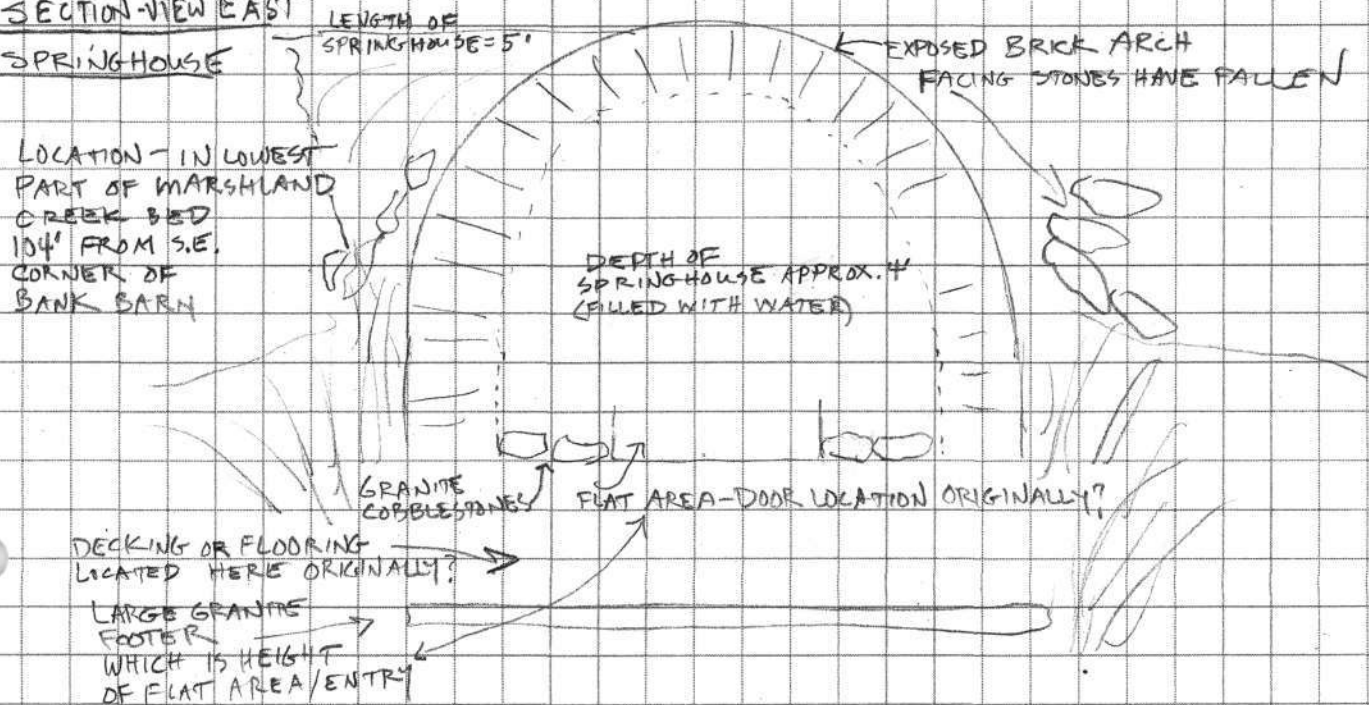 SECTION-VIEW EAST
SPRINGHOUSE
LENGTH OF
SPRINGHOUSE=5'
EXPOSED BRICK ARCH
FACING STONES HAVE FALLEN
LOCATION - IN LOWEST
PART OF MARSHLAND
CREEK BED
104' FROM S.E.
CORNER OF
BANK BARN
DEPTH OF
SPRINGHOUSE APPROX. 4'
(FILLED WITH WATER)
GRANITE
COBBLESTONES
FLAT AREA-DOOR LOCATION ORIGINALLY?
DECKING OR FLOORING
LOCATED HERE ORIGINALLY?
LARGE GRANITE
FOOTER
WHICH IS HEIGHT
OF FLAT AREA/ENTRY